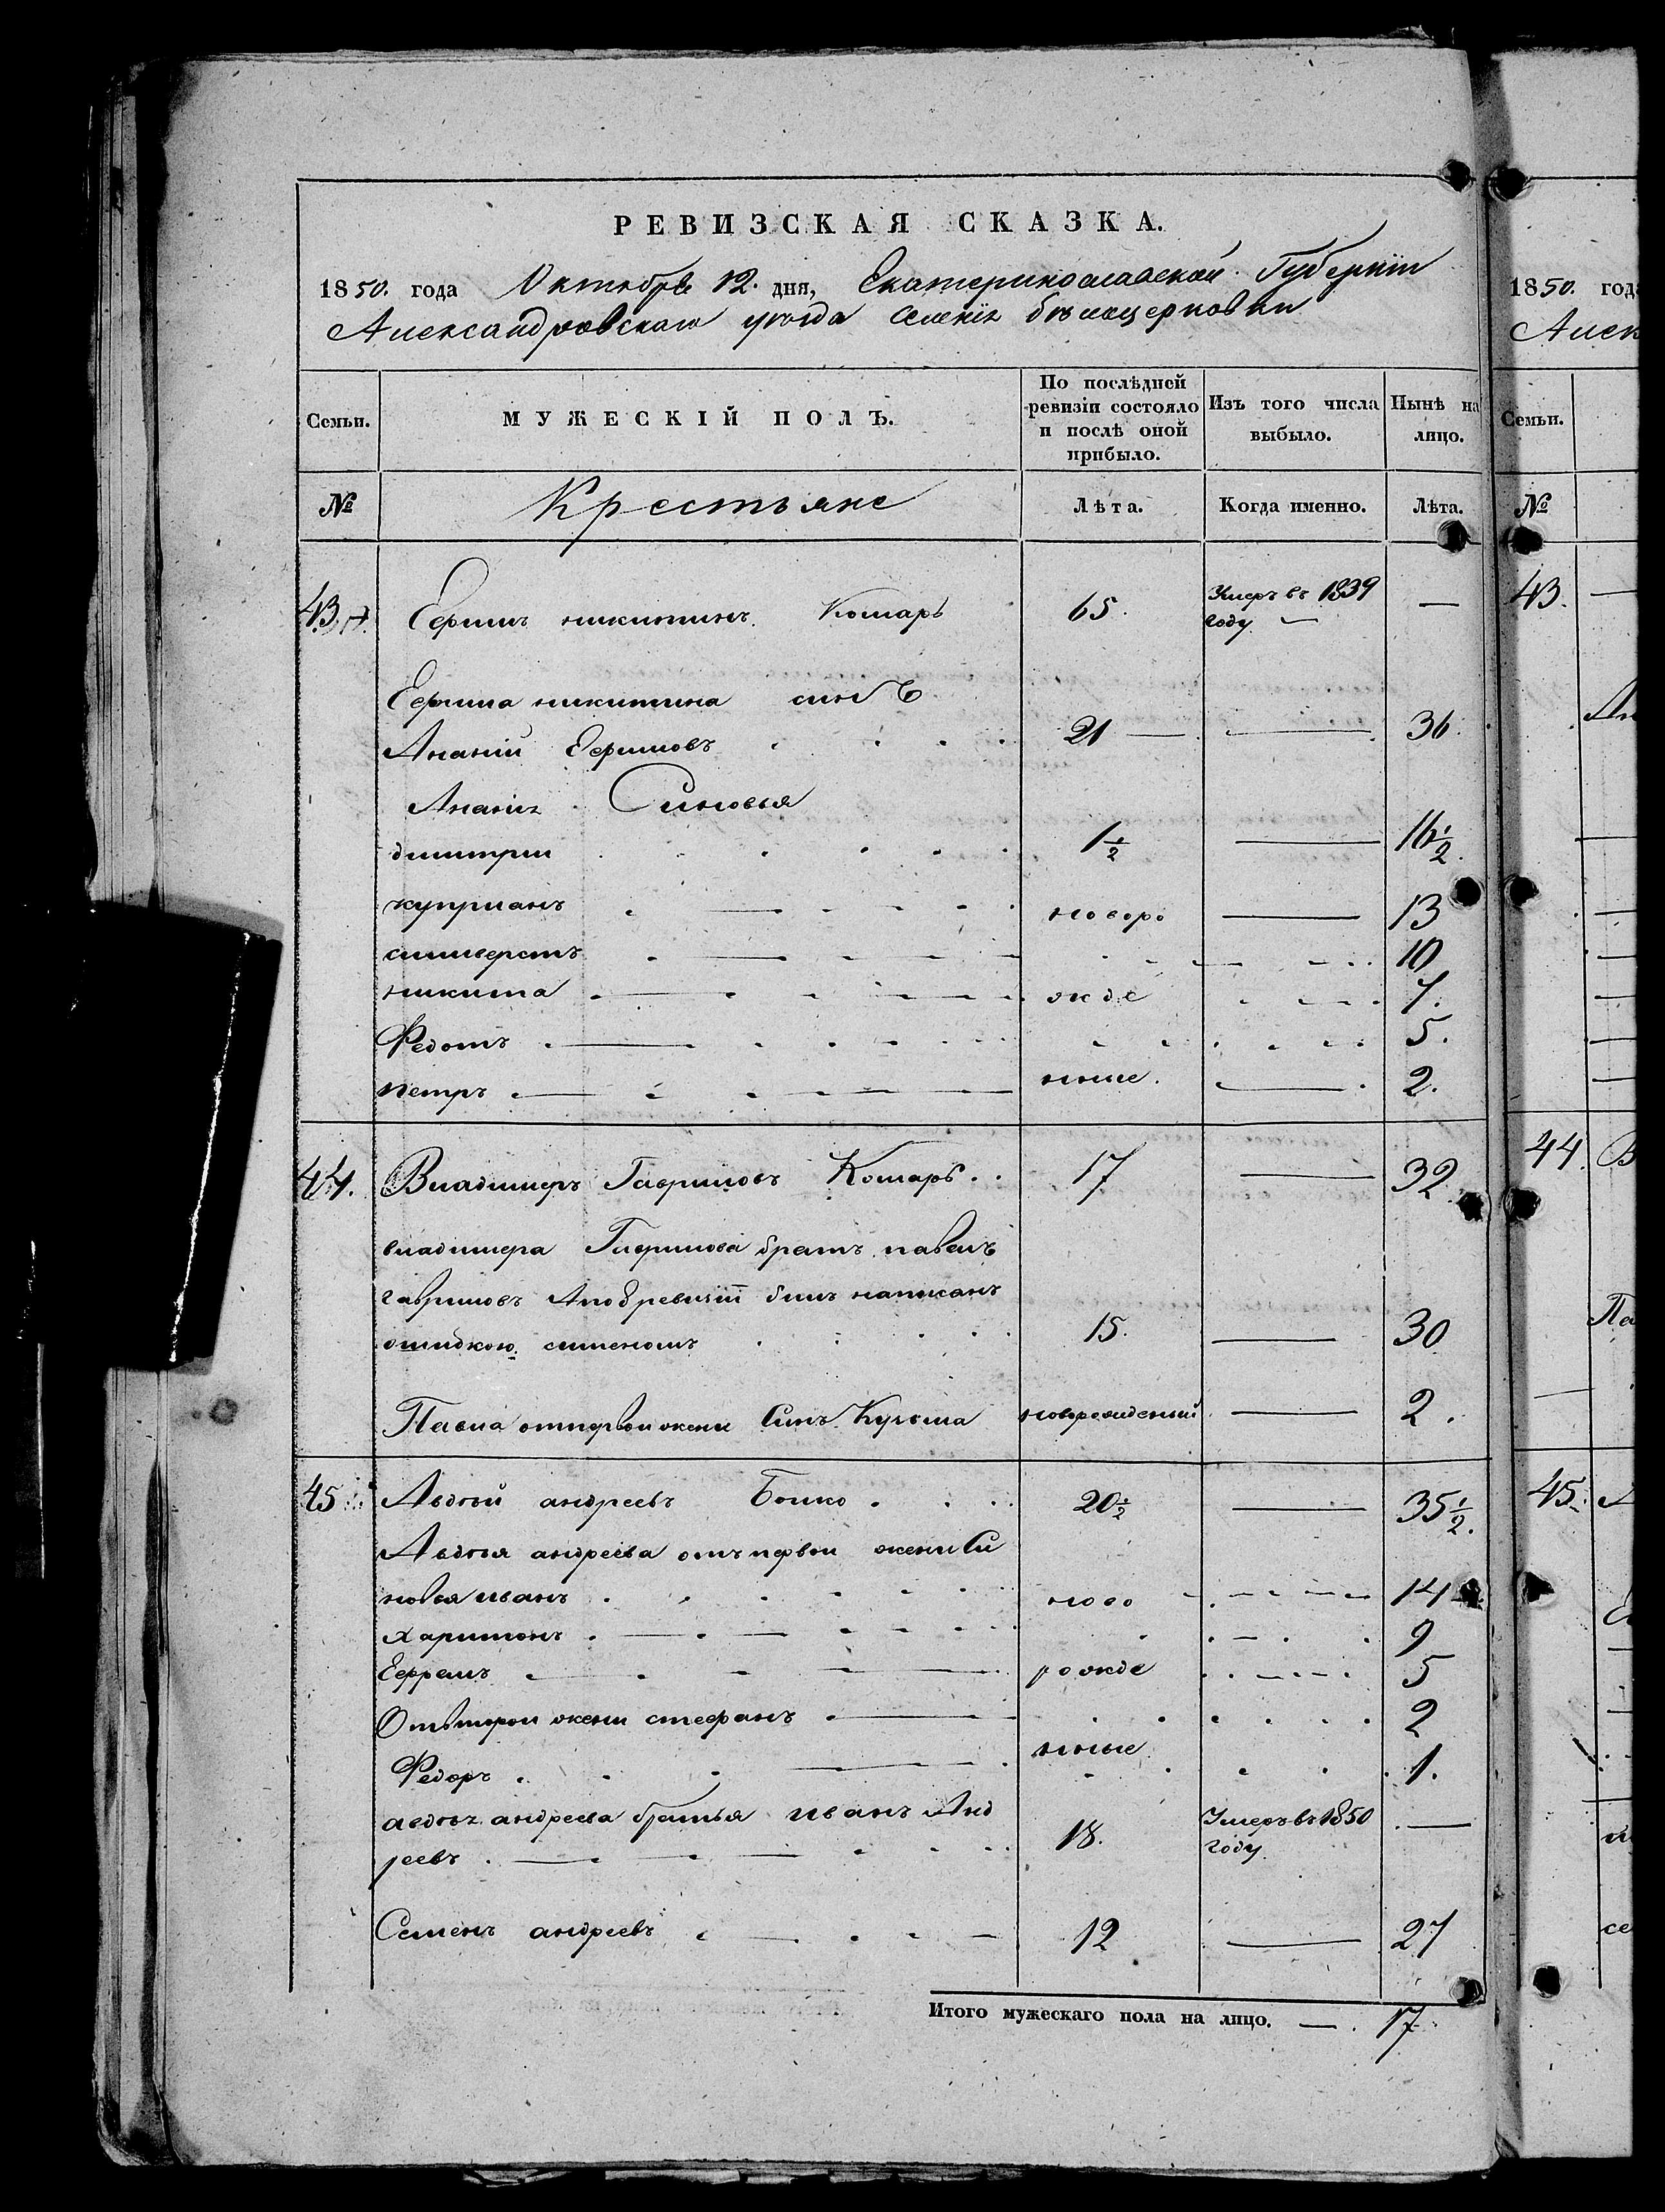 РЕВИЗСКАЯ СКАЗКА.
1850. года Октября 12. дня, Екатеринославской Губернїи
Александровскаго уезда Селенїя белоцерковки
Семьи.
МУЖЕСКІЙ ПОЛЪ.
По послѣдней ревизіи состояло и послѣ оной прибыло.
Изъ того числа выбыло.
Нынѣ на лицо.
№ Крестьяне Лѣта. Когда именно. Лѣта.
43. Ефимъ никитинъ Комаръ 65. Умеръ въ 1839 году —
Ефима никитина синъ
Ананїй Ефимовъ 21 — 36.
Ананїя Синовья
димитрии 1 1/2 — 16 1/2.
куприянъ новоро — 13
силиверстъ 10
никита жде 7.
Федотъ 5.
петръ нные. 2.
44. Владимеръ Гавриловъ Комаръ 17 — 32
владимера Гаврилова братъ павелъ
гавриловъ Апо Зревизїи билъ написанъ
ошибкою. сименомъ 15. — 30
Павла отпервои жени Синъ Кузьма новорожденый — 2.
45 Авдѣй андреевъ Бойко 20 1/2 — 35 1/2.
Авдѣя андреева отъ первои жени Си
новья иванъ ново 14
харитонъ 9
Ефремъ рожде 5
Отвторои жени стефанъ 2
Федоръ нные 1.
авдѣя андреева братья иванъ Анд
реевъ 18. Умеръ въ 1850 году. —
Семенъ андреевъ 12 — 27
Итого мужескаго пола на лицо. — 17
1850. год
Алек
Семьи.
№
43.
Ан
44. В
Па
45.
се